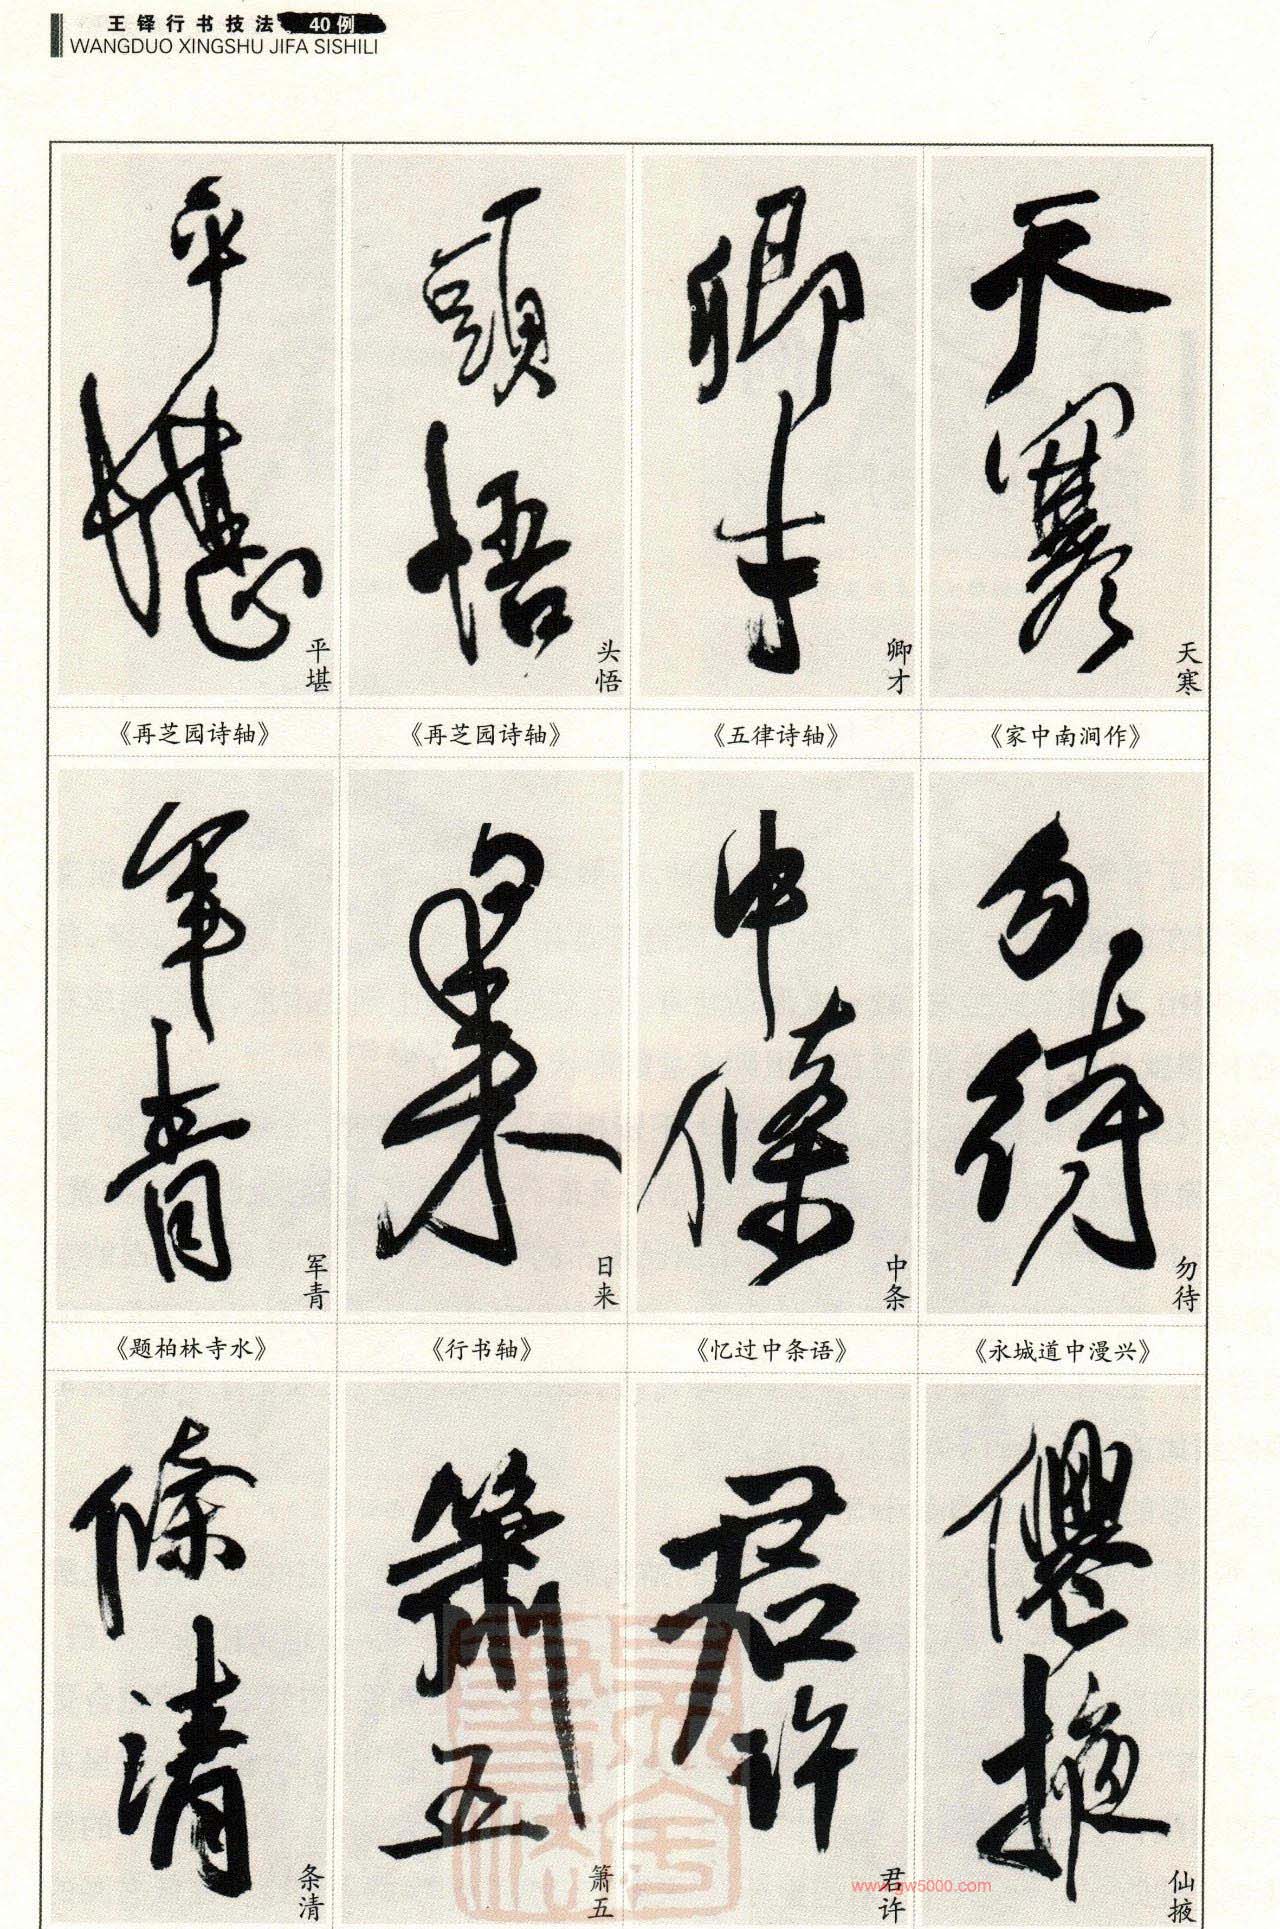 王铎行书技法 40例
WANGDUO XINGSHU JIFA SISHILI
平堪
头悟
卿才
天寒
《再芝园诗轴》
《再芝园诗轴》
《五律诗轴》
《家中南涧作》
军青
日来
中条
勿待
《题柏林寺水》
《行书轴》
《忆过中条语》
《永城道中漫兴》
条清
箫五
君许
仙掖
www.gw5000.com